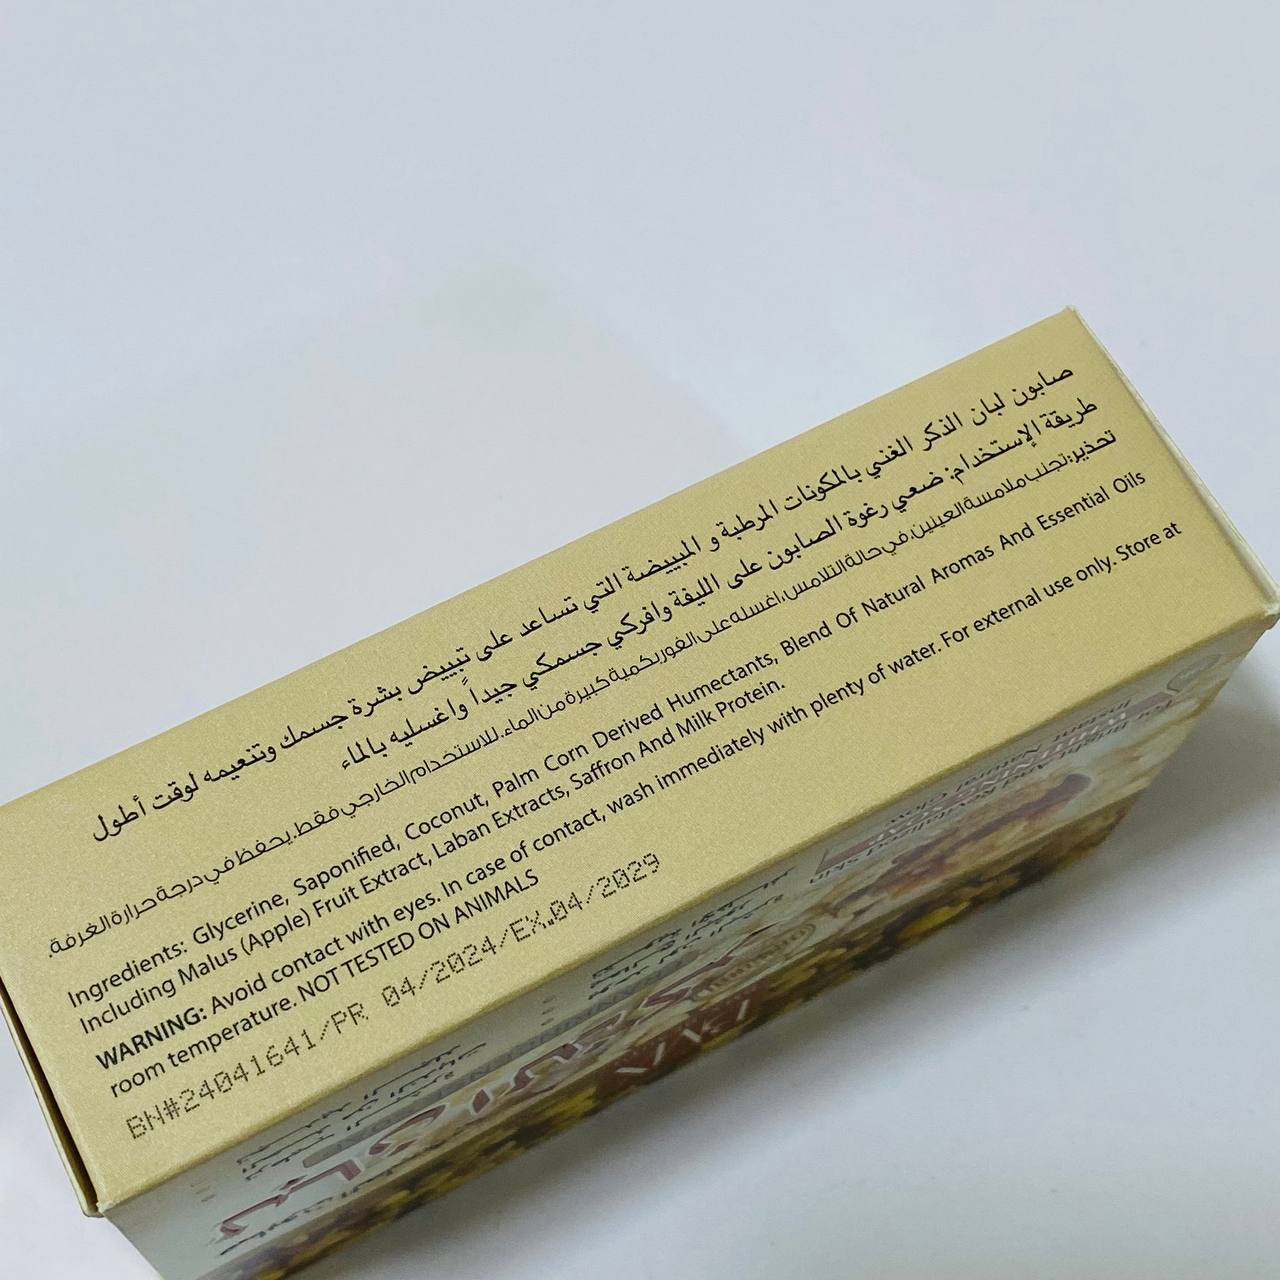 صابون لبان الذكر الغني بالمكونات المرطبة و المبيضة التي تساعد على تبييض بشرة جسمك وتنعيمه لوقت أطول
طريقة الإستخدام: ضعي رغوة الصابون على الليفة وافركي جسمكي جيداً واغسليه بالماء
تحذير: تجنب ملامسة العينين. في حالة التلامس، اغسله على الفور بكمية كبيرة من الماء. للاستخدام الخارجي فقط. يحفظ في درجة حرارة الغرفة.
Ingredients: Glycerine, Saponified, Coconut, Palm Corn Derived Humectants, Blend Of Natural Aromas And Essential Oils
Including Malus (Apple) Fruit Extract, Laban Extracts, Saffron And Milk Protein.
WARNING: Avoid contact with eyes. In case of contact, wash immediately with plenty of water. For external use only. Store at
room temperature. NOT TESTED ON ANIMALS
BN#24041641/PR 04/2024/EX.04/2029